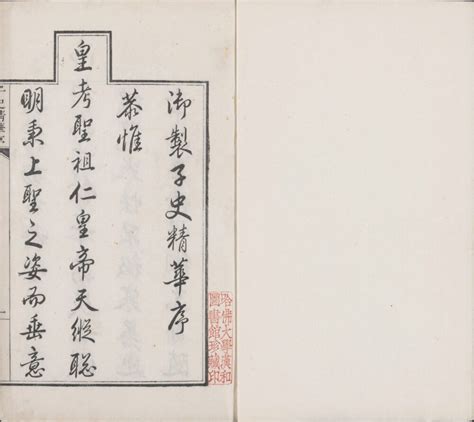 御製子史精華序
恭惟
皇考聖祖仁皇帝天縱聰
明秉上聖之姿而垂意
哈佛大學漢和
圖書館珍藏印